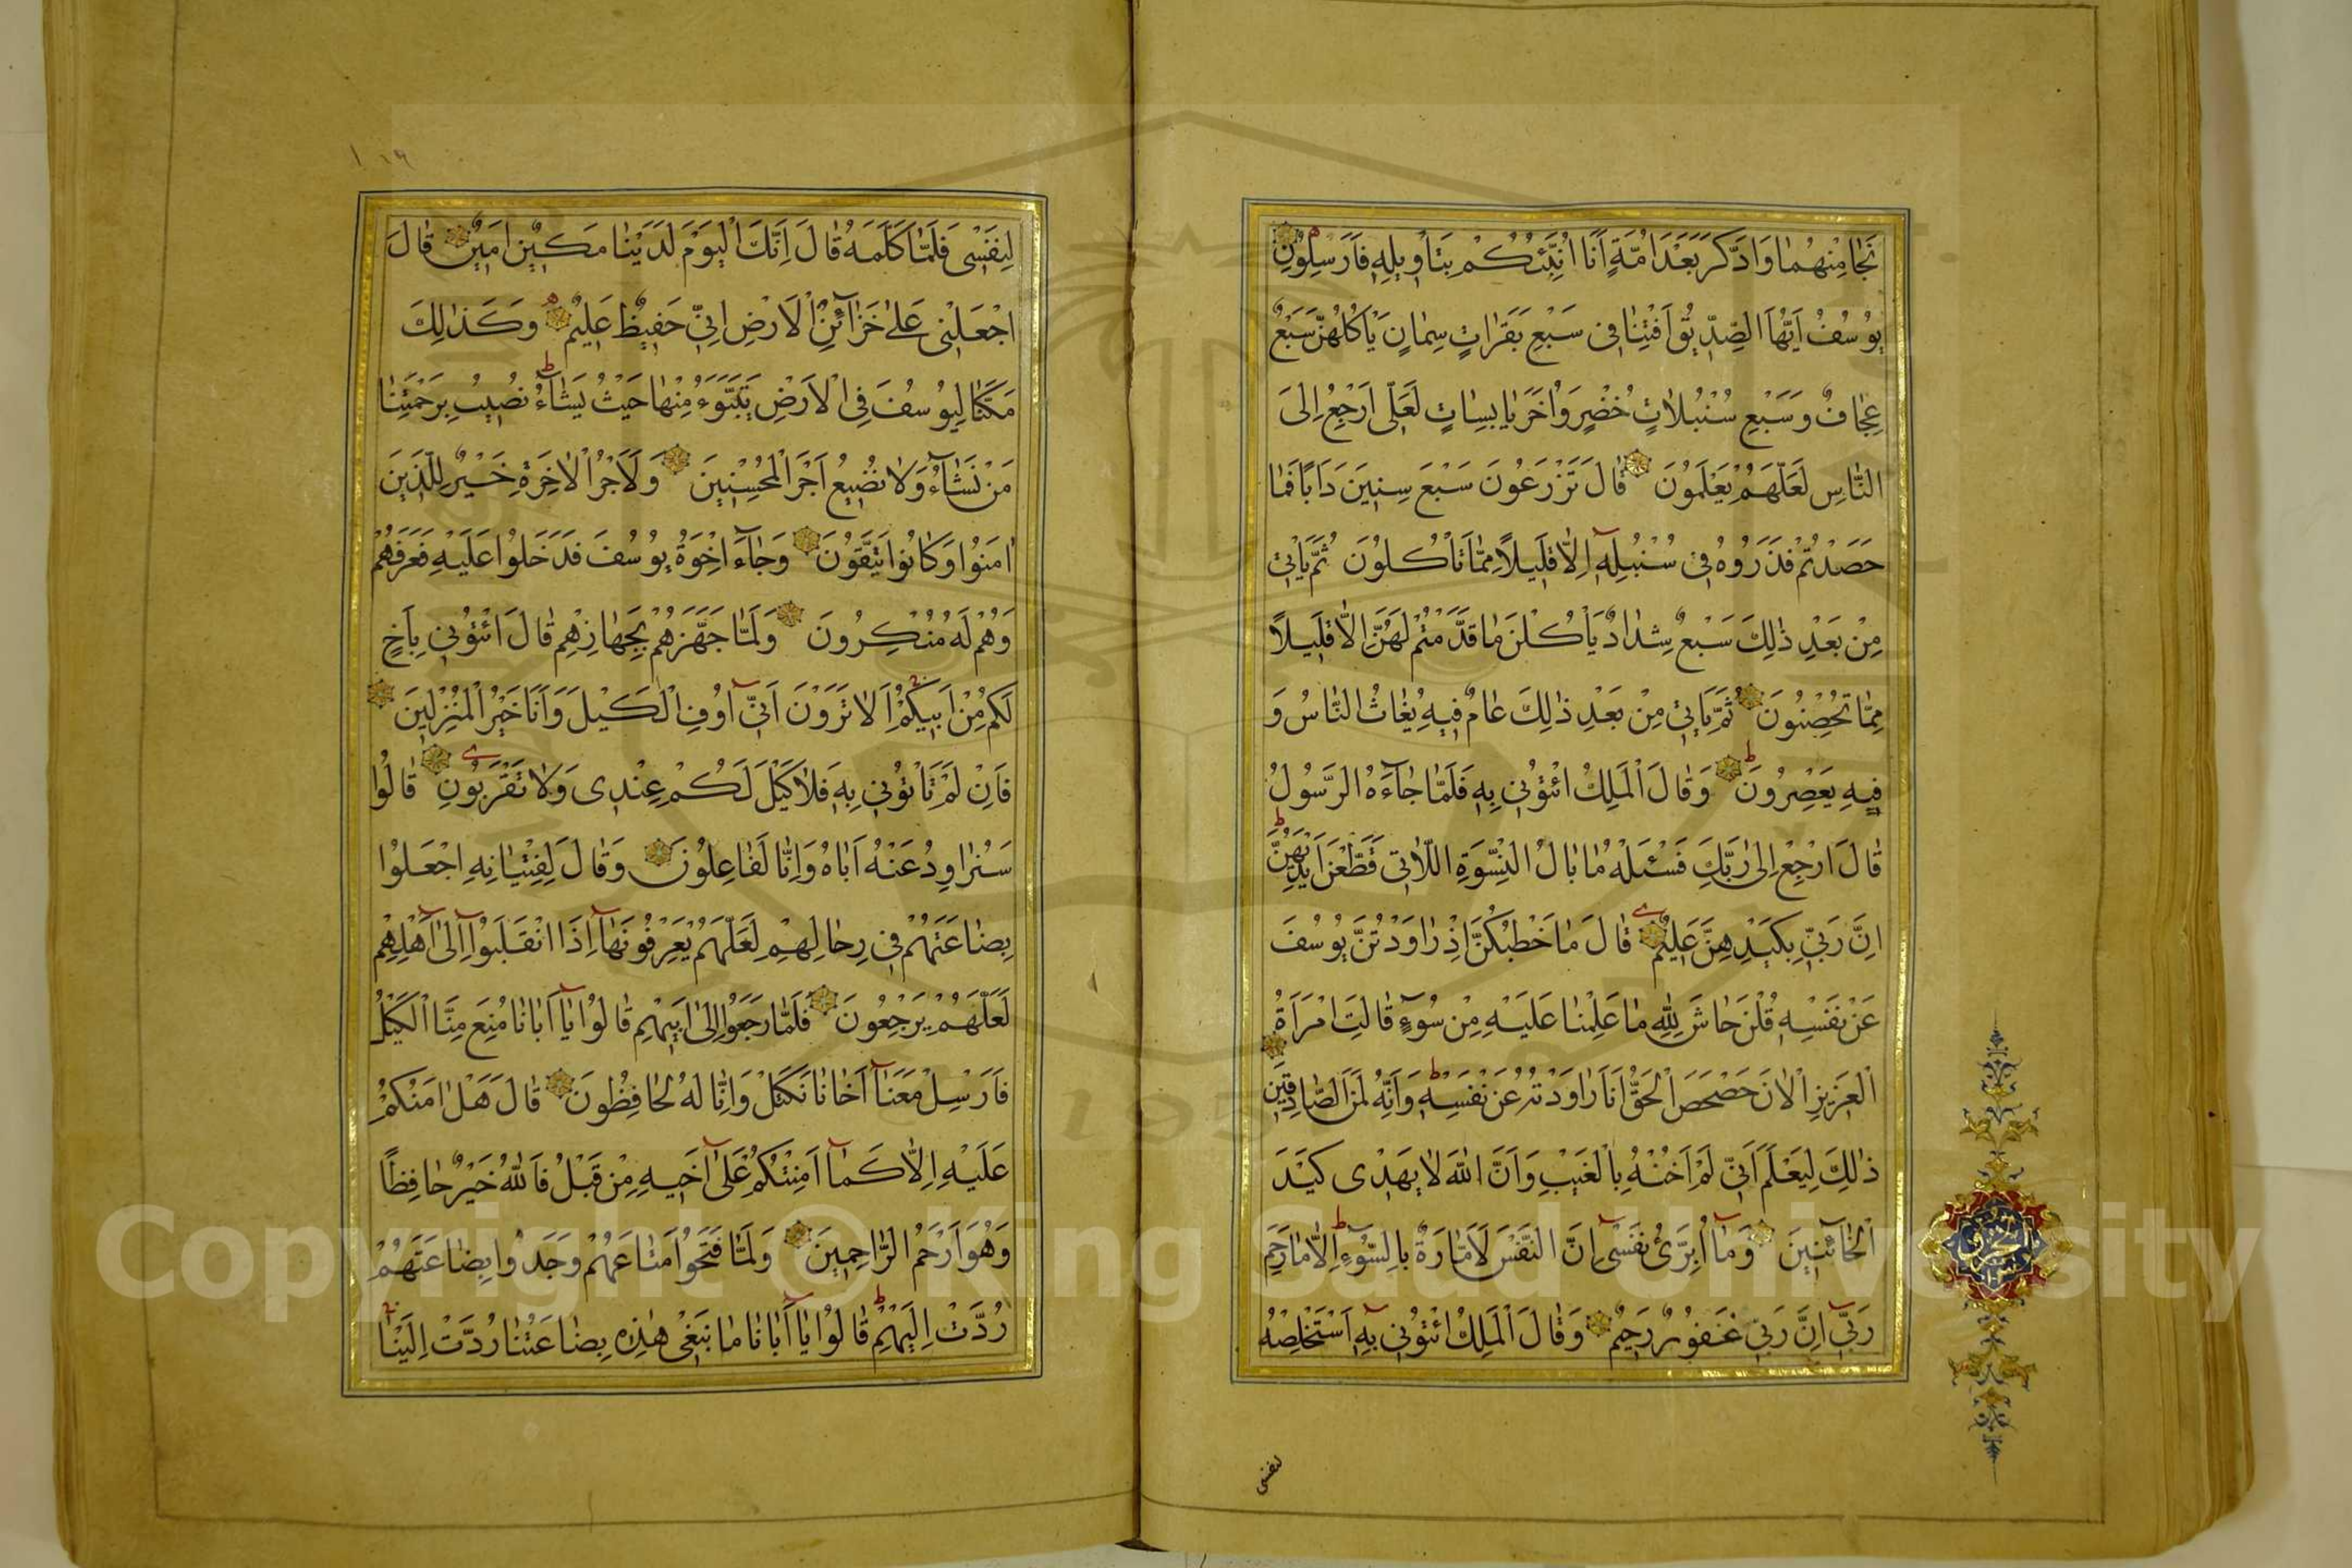 نَجَا مِنْهُمَا وَادَّكَرَ بَعْدَ اُمَّةٍ اَنَا اُنَبِّئُكُمْ بِتَاْوِيلِهِ فَاَرْسِلُونِ
يُوسُفُ اَيُّهَا الصِّدِّيقُ اَفْتِنَا فِى سَبْعِ بَقَرَاتٍ سِمَانٍ يَاْكُلُهُنَّ سَبْعٌ
عِجَافٌ وَسَبْعِ سُنْبُلَاتٍ خُضْرٍ وَاُخَرَ يَابِسَاتٍ لَعَلِّى اَرْجِعُ اِلَى
النَّاسِ لَعَلَّهُمْ يَعْلَمُونَ قَالَ تَزْرَعُونَ سَبْعَ سِنِينَ دَاَبًا فَمَا
حَصَدْتُمْ فَذَرُوهُ فِى سُنْبُلِهِ اِلَّا قَلِيلًا مِمَّا تَاْكُلُونَ ثُمَّ يَاْتِى
مِنْ بَعْدِ ذٰلِكَ سَبْعٌ شِدَادٌ يَاْكُلْنَ مَا قَدَّمْتُمْ لَهُنَّ اِلَّا قَلِيلًا
مِمَّا تُحْصِنُونَ ثُمَّ يَاْتِى مِنْ بَعْدِ ذٰلِكَ عَامٌ فِيهِ يُغَاثُ النَّاسُ وَ
فِيهِ يَعْصِرُونَ وَقَالَ الْمَلِكُ ائْتُونِى بِهِ فَلَمَّا جَآءَهُ الرَّسُولُ
قَالَ ارْجِعْ اِلَى رَبِّكَ فَسْئَلْهُ مَا بَالُ النِّسْوَةِ اللَّاتِى قَطَّعْنَ اَيْدِيَهُنَّ
اِنَّ رَبِّى بِكَيْدِهِنَّ عَلِيمٌ قَالَ مَا خَطْبُكُنَّ اِذْ رَاوَدْتُنَّ يُوسُفَ
عَنْ نَفْسِهِ قُلْنَ حَاشَ لِلّٰهِ مَا عَلِمْنَا عَلَيْهِ مِنْ سُوٓءٍ قَالَتِ امْرَاَةُ
الْعَزِيزِ الْاٰنَ حَصْحَصَ الْحَقُّ اَنَا رَاوَدْتُهُ عَنْ نَفْسِهِ وَاِنَّهُ لَمِنَ الصَّادِقِينَ
ذٰلِكَ لِيَعْلَمَ اَنِّى لَمْ اَخُنْهُ بِالْغَيْبِ وَاَنَّ اللّٰهَ لَا يَهْدِى كَيْدَ
الْخَآئِنِينَ وَمَآ اُبَرِّئُ نَفْسِى اِنَّ النَّفْسَ لَاَمَّارَةٌ بِالسُّوٓءِ اِلَّا مَا رَحِمَ
رَبِّى اِنَّ رَبِّى غَفُورٌ رَحِيمٌ وَقَالَ الْمَلِكُ ائْتُونِى بِهِ اَسْتَخْلِصْهُ
لنفسى
لِنَفْسِى فَلَمَّا كَلَّمَهُ قَالَ اِنَّكَ الْيَوْمَ لَدَيْنَا مَكِينٌ اَمِينٌ قَالَ
اجْعَلْنِى عَلٰى خَزَآئِنِ الْاَرْضِ اِنِّى حَفِيظٌ عَلِيمٌ وَكَذٰلِكَ
مَكَّنَّا لِيُوسُفَ فِى الْاَرْضِ يَتَبَوَّءُ مِنْهَا حَيْثُ يَشَآءُ نُصِيبُ بِرَحْمَتِنَا
مَنْ نَشَآءُ وَلَا نُضِيعُ اَجْرَ الْمُحْسِنِينَ وَلَاَجْرُ الْاٰخِرَةِ خَيْرٌ لِلَّذِينَ
اٰمَنُوا وَكَانُوا يَتَّقُونَ وَجَآءَ اِخْوَةُ يُوسُفَ فَدَخَلُوا عَلَيْهِ فَعَرَفَهُمْ
وَهُمْ لَهُ مُنْكِرُونَ وَلَمَّا جَهَّزَهُمْ بِجَهَازِهِمْ قَالَ ائْتُونِى بِاَخٍ
لَكُمْ مِنْ اَبِيكُمْ اَلَا تَرَوْنَ اَنِّى اُوفِى الْكَيْلَ وَاَنَا خَيْرُ الْمُنْزِلِينَ
فَاِنْ لَمْ تَاْتُونِى بِهِ فَلَا كَيْلَ لَكُمْ عِنْدِى وَلَا تَقْرَبُونِ قَالُوا
سَنُرَاوِدُ عَنْهُ اَبَاهُ وَاِنَّا لَفَاعِلُونَ وَقَالَ لِفِتْيَانِهِ اجْعَلُوا
بِضَاعَتَهُمْ فِى رِحَالِهِمْ لَعَلَّهُمْ يَعْرِفُونَهَآ اِذَا انْقَلَبُوٓا اِلٰٓى اَهْلِهِمْ
لَعَلَّهُمْ يَرْجِعُونَ فَلَمَّا رَجَعُوا اِلٰى اَبِيهِمْ قَالُوا يَآ اَبَانَا مُنِعَ مِنَّا الْكَيْلُ
فَاَرْسِلْ مَعَنَآ اَخَانَا نَكْتَلْ وَاِنَّا لَهُ لَحَافِظُونَ قَالَ هَلْ اٰمَنُكُمْ
عَلَيْهِ اِلَّا كَمَآ اَمِنْتُكُمْ عَلٰٓى اَخِيهِ مِنْ قَبْلُ فَاللّٰهُ خَيْرٌ حَافِظًا
وَهُوَ اَرْحَمُ الرَّاحِمِينَ وَلَمَّا فَتَحُوا مَتَاعَهُمْ وَجَدُوا بِضَاعَتَهُمْ
رُدَّتْ اِلَيْهِمْ قَالُوا يَآ اَبَانَا مَا نَبْغِى هٰذِهِ بِضَاعَتُنَا رُدَّتْ اِلَيْنَا
Copyright © King Saud University